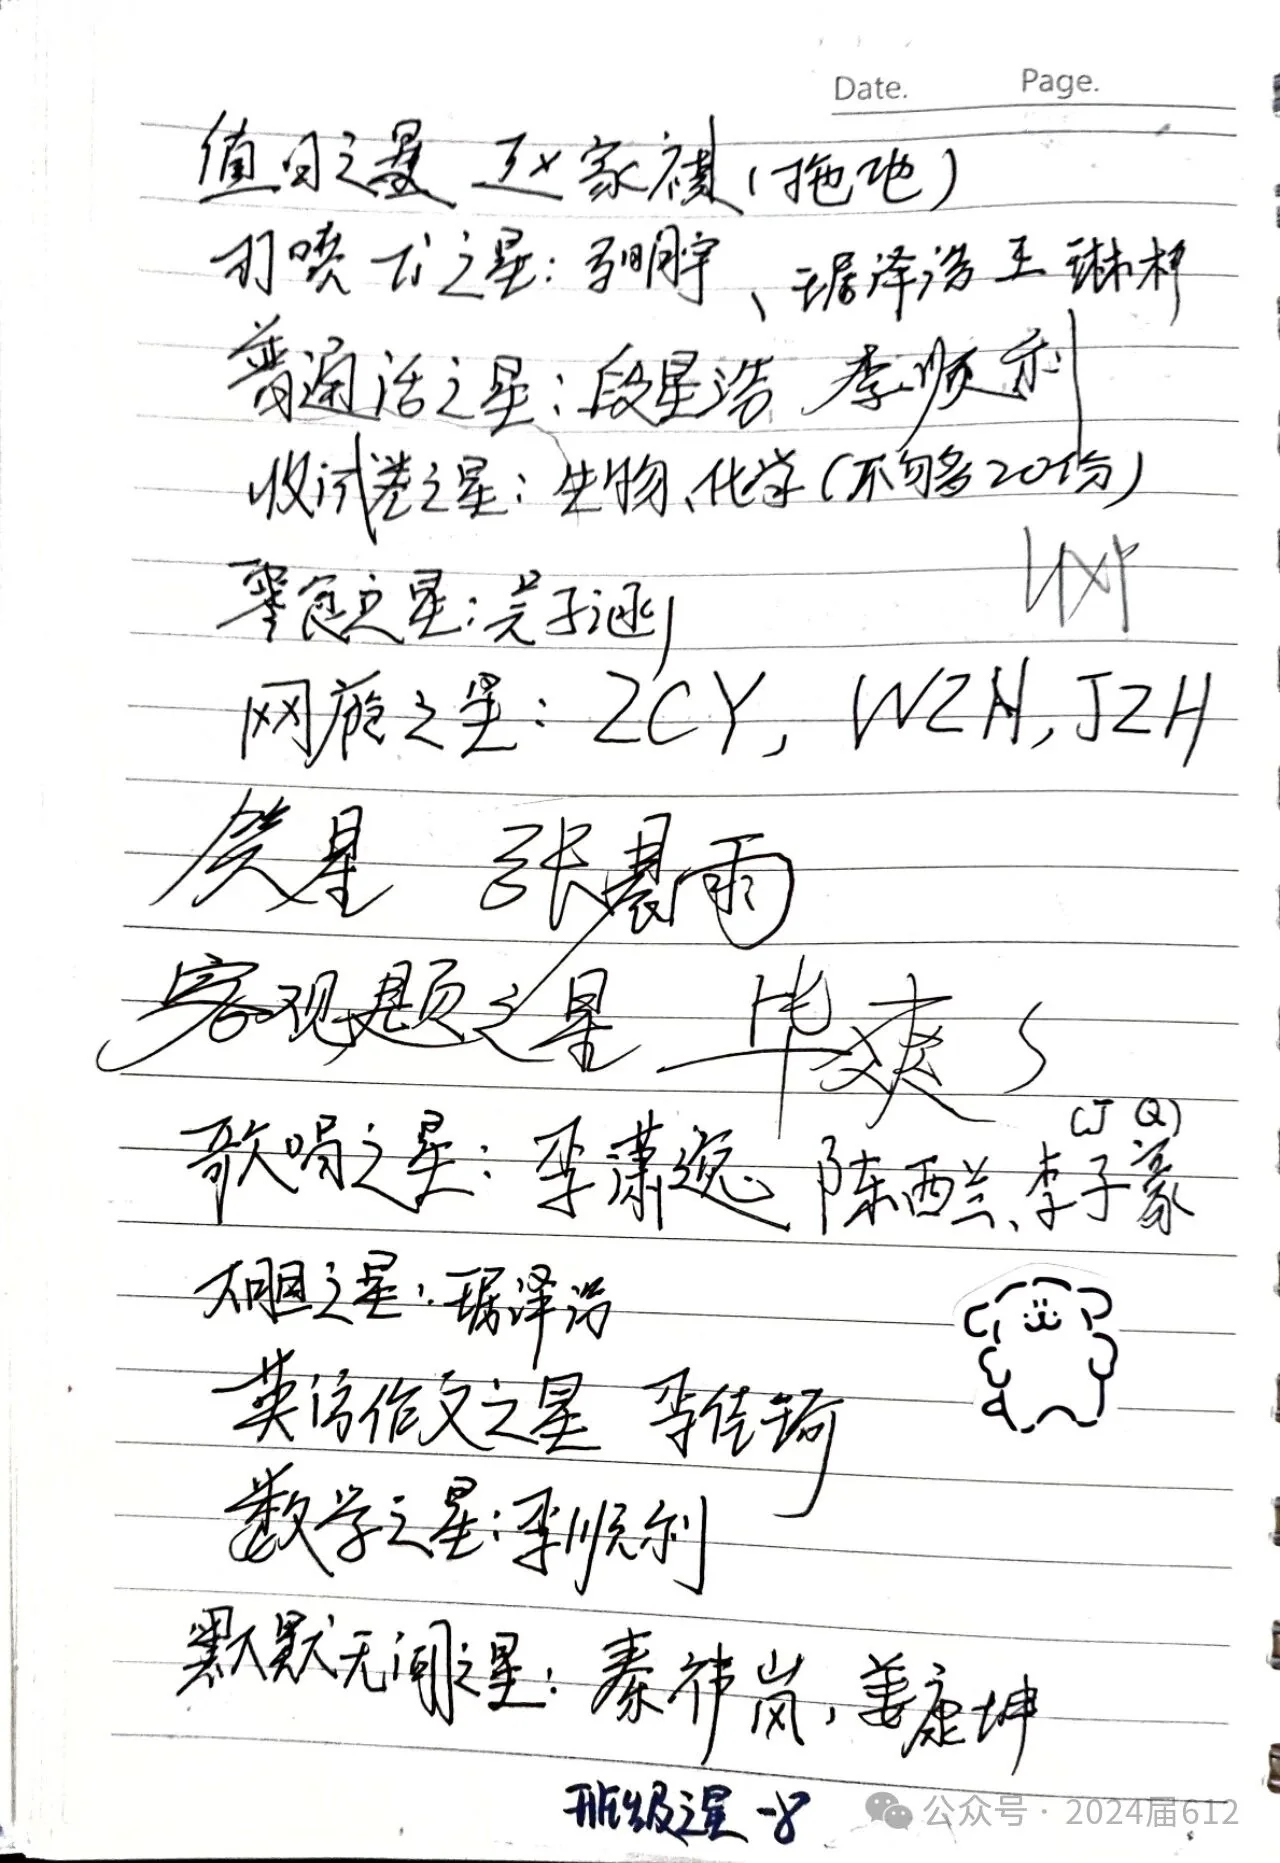 Date. Page.
值日之星 赵家祺(拖地)
打喷嚏之星：明宇、琚泽浩 王琳
普通话之星：段星浩 李顺利
收试卷之星：生物、化学(不够20份)
零食之星：吴子涵
网瘾之星：ZCY, WZH, JZH
笑星 张晨雨
客观题之星 毕爽
(J Q)
歌唱之星：李潇逸 陈西兰、李子豪
大胆之星：琚泽浩
英语作文之星 李佳锜
数学之星：李顺利
默默无闻之星：秦祎岚，姜康坤
班级之星-8
公众号·2024届612